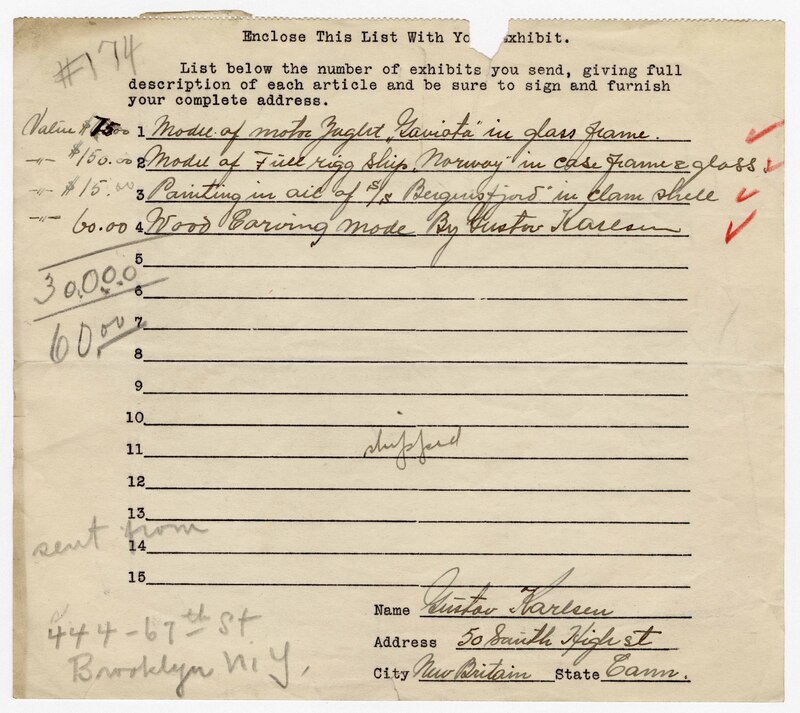 Enclose This List With Yo xhibit.
#174
List below the number of exhibits you send, giving full
description of each article and be sure to sign and furnish
your complete address.
Value $75.00 1 Model of motor Yaght „Gaviota" in glass frame.
-"- $150.00 2 Model of Full rigg ship „Norway" in case frame & glass.
-"- $15.00 3 Painting in oil of s/s Bergensfjord" in clam shell
-"- 60.00 4 Wood Carving mode By Gustov Karlsen
5
300.00
6
60.00 7
8
9
10
shipped
11
12
13
sent from
14
15
Name Gustov Karlsen
444-67th St
Address 50 South High st
Brooklyn N.Y.
City New Britain State Conn.